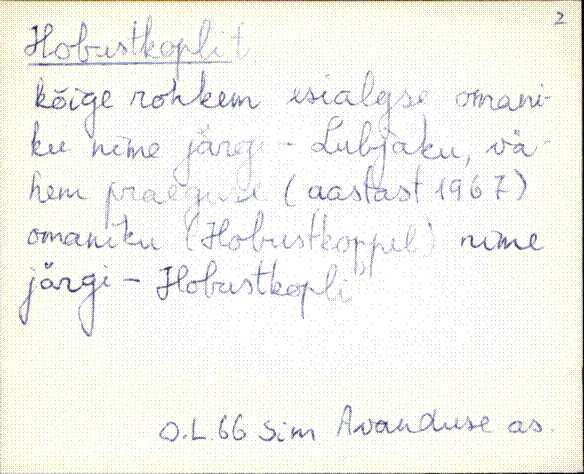 2
Hobustkoplit
kõige rohkem esialgse omani-
ku nime järgi - Lubjaku, vä-
hem praeguse (aastast 1967)
omaniku (Hobustkoppel) nime
järgi - Hobustkopli
O.L. 66 Sim Avanduse as.